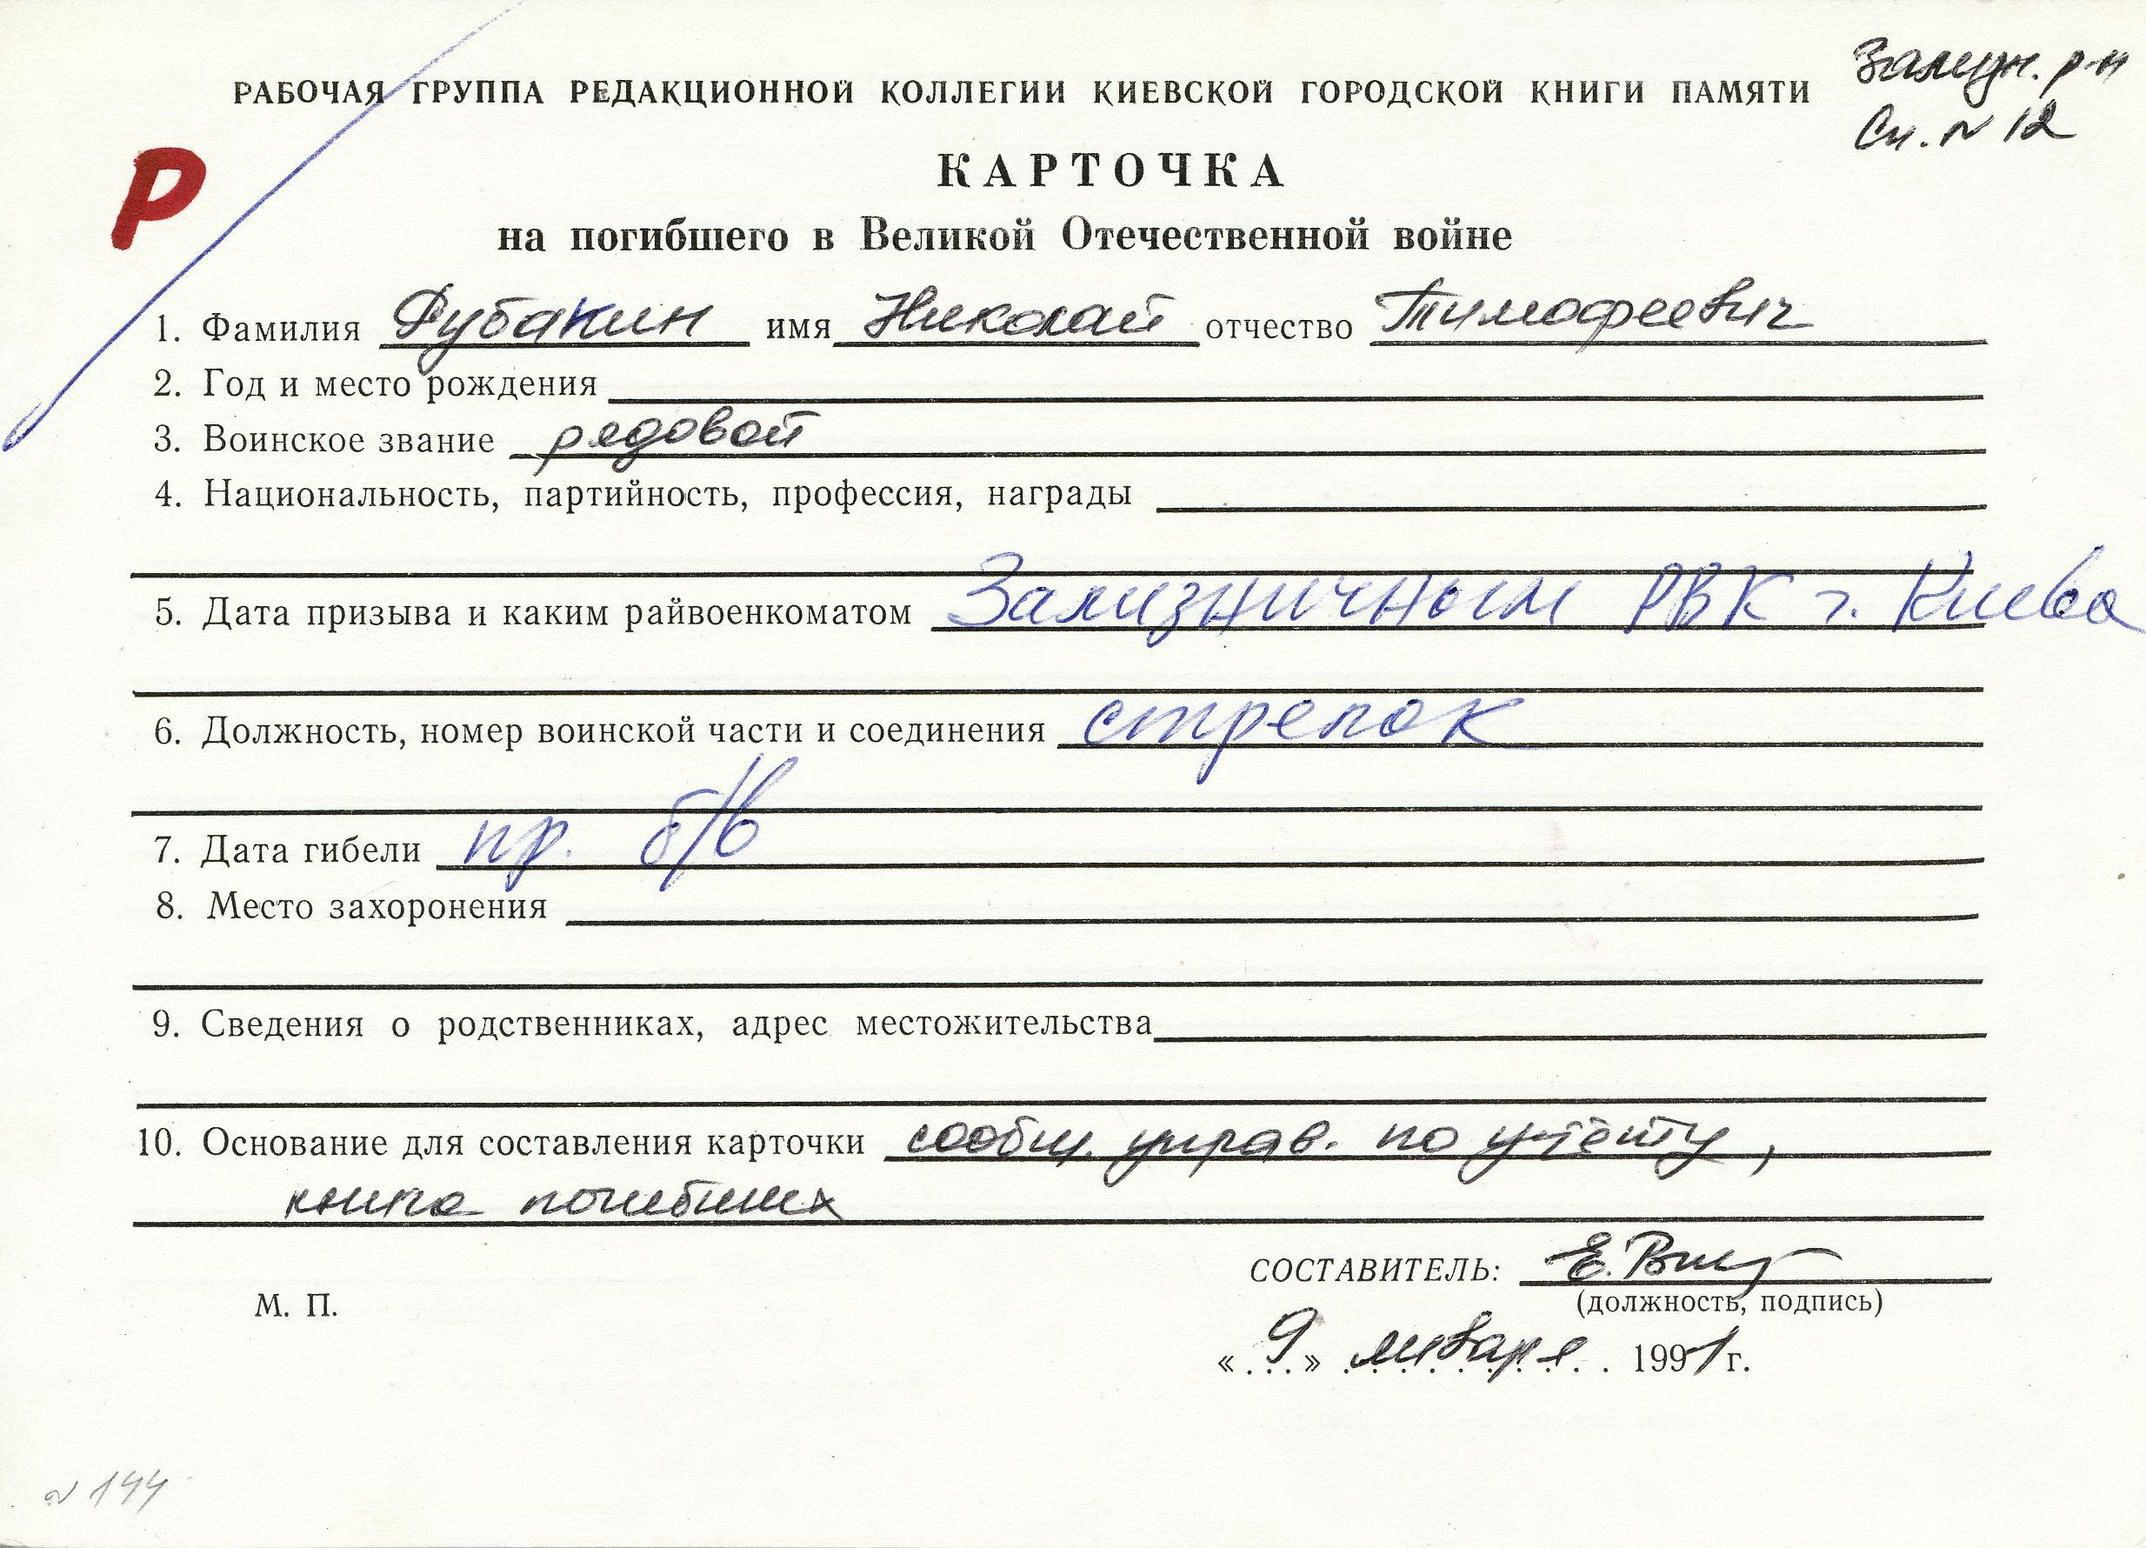 Зализн. р-н
РАБОЧАЯ ГРУППА РЕДАКЦИОННОЙ КОЛЛЕГИИ КИЕВСКОЙ ГОРОДСКОЙ КНИГИ ПАМЯТИ
Сп. N 12
Р
КАРТОЧКА
на погибшего в Великой Отечественной войне
1. Фамилия Рубакин имя Николай отчество Тимофеевич
2. Год и место рождения
3. Воинское звание рядовой
4. Национальность, партийность, профессия, награды
5. Дата призыва и каким райвоенкоматом Зализничным РВК г. Киева
6. Должность, номер воинской части и соединения стрелок
7. Дата гибели пр. б/в
8. Место захоронения
9. Сведения о родственниках, адрес местожительства
10. Основание для составления карточки сообщ. управ. по учёту,
книга погибших
СОСТАВИТЕЛЬ: Е.
(должность, подпись)
М. П.
«9» января 1991 г.
N 144